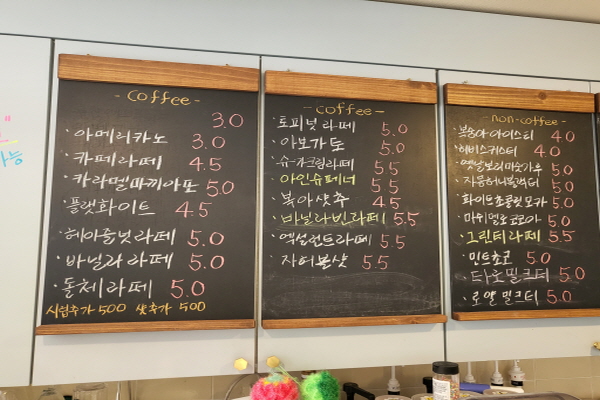 - Coffee -
3.0
· 아메리카노 3.0
· 카페라떼 4.5
· 카라멜마끼아또 5.0
· 플랫화이트 4.5
· 헤이즐넛라떼 5.0
· 바닐라라떼 5.0
· 돌체라떼 5.0
시럽추가 500 샷추가 500
- Coffee -
· 토피넛라떼 5.0
· 아포가토 5.0
· 슈·크림라떼 5.5
· 아인슈페너 5.5
· 복아샷추 4.5
· 바닐라빈라떼 5.5
· 엑설런트라떼 5.5
· 자허블샷 5.5
- non-coffee -
· 복숭아 아이스티 4.0
· 히비스커스티 4.0
· 옛날보리미숫가루 5.0
· 자몽허니블랙티 5.0
· 화이트초콜릿모카 5.0
· 마쉬멜로코코아 5.0
· 그린티라떼 5.5
· 민트초코 5.0
· 타로밀크티 5.0
· 로얄밀크티 5.0
가능